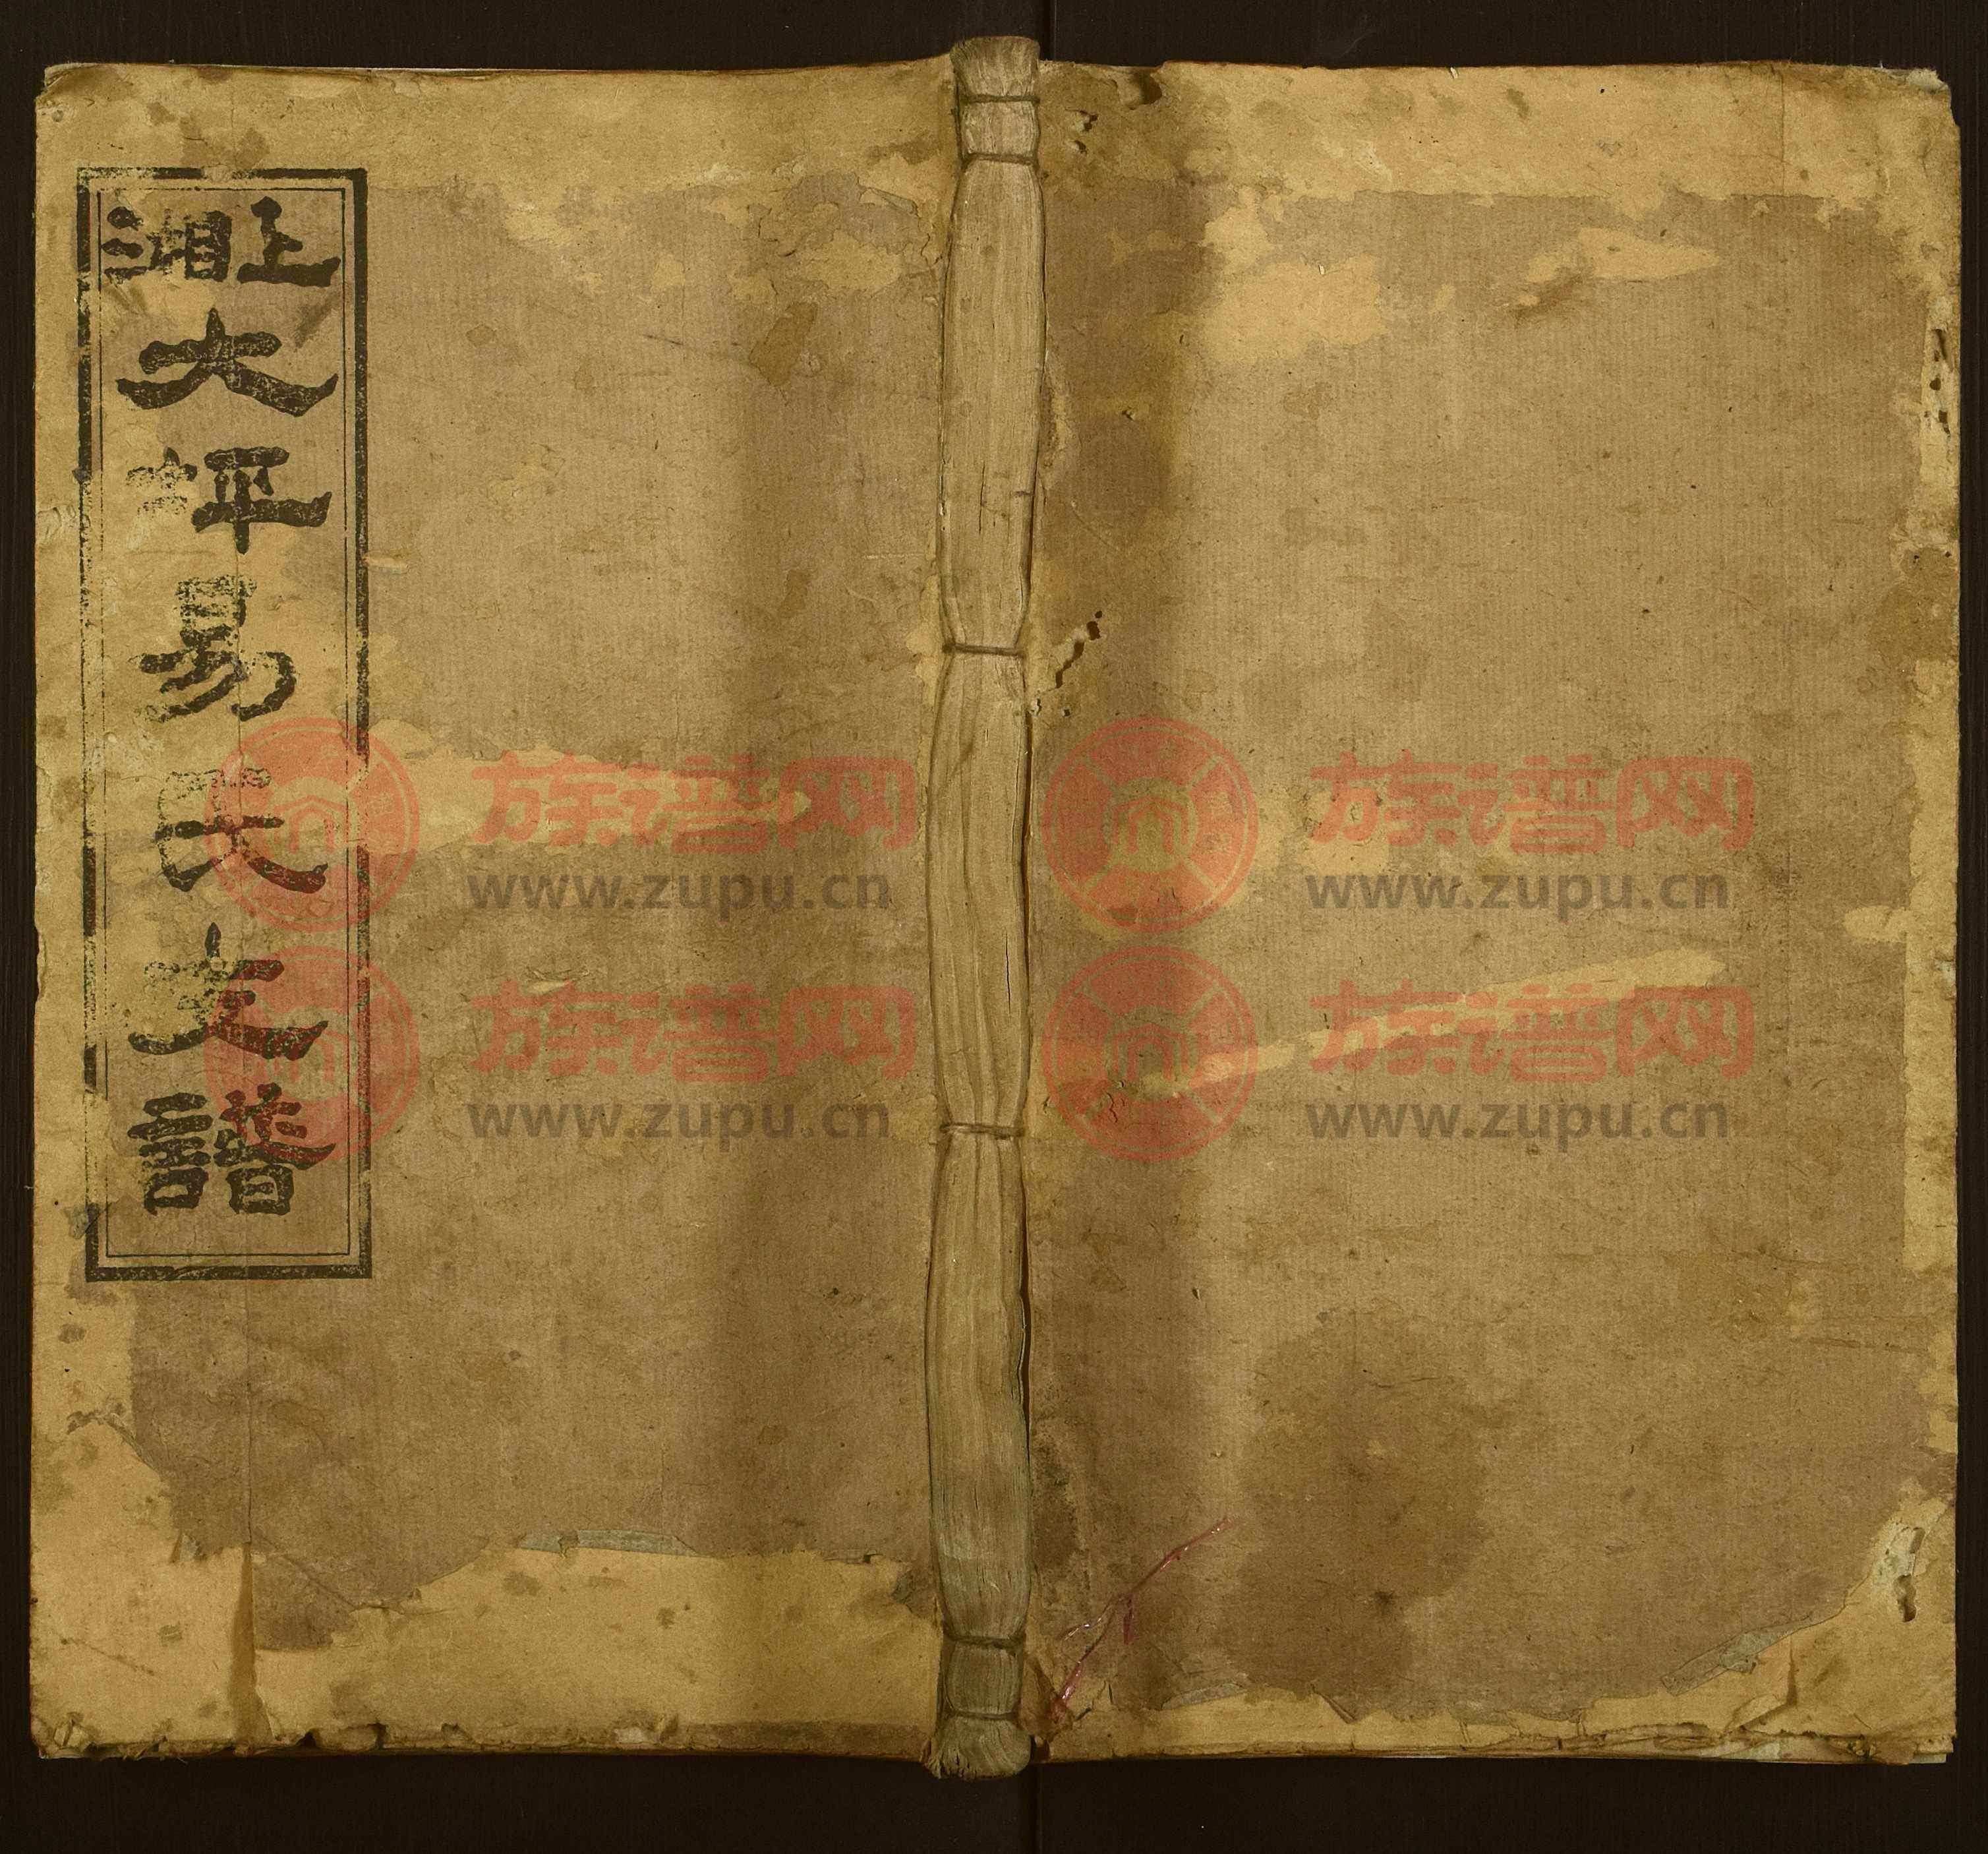 上湘
大坪易氏支譜
族谱网
www.zupu.cn
族谱网
www.zupu.cn
族谱网
www.zupu.cn
族谱网
www.zupu.cn